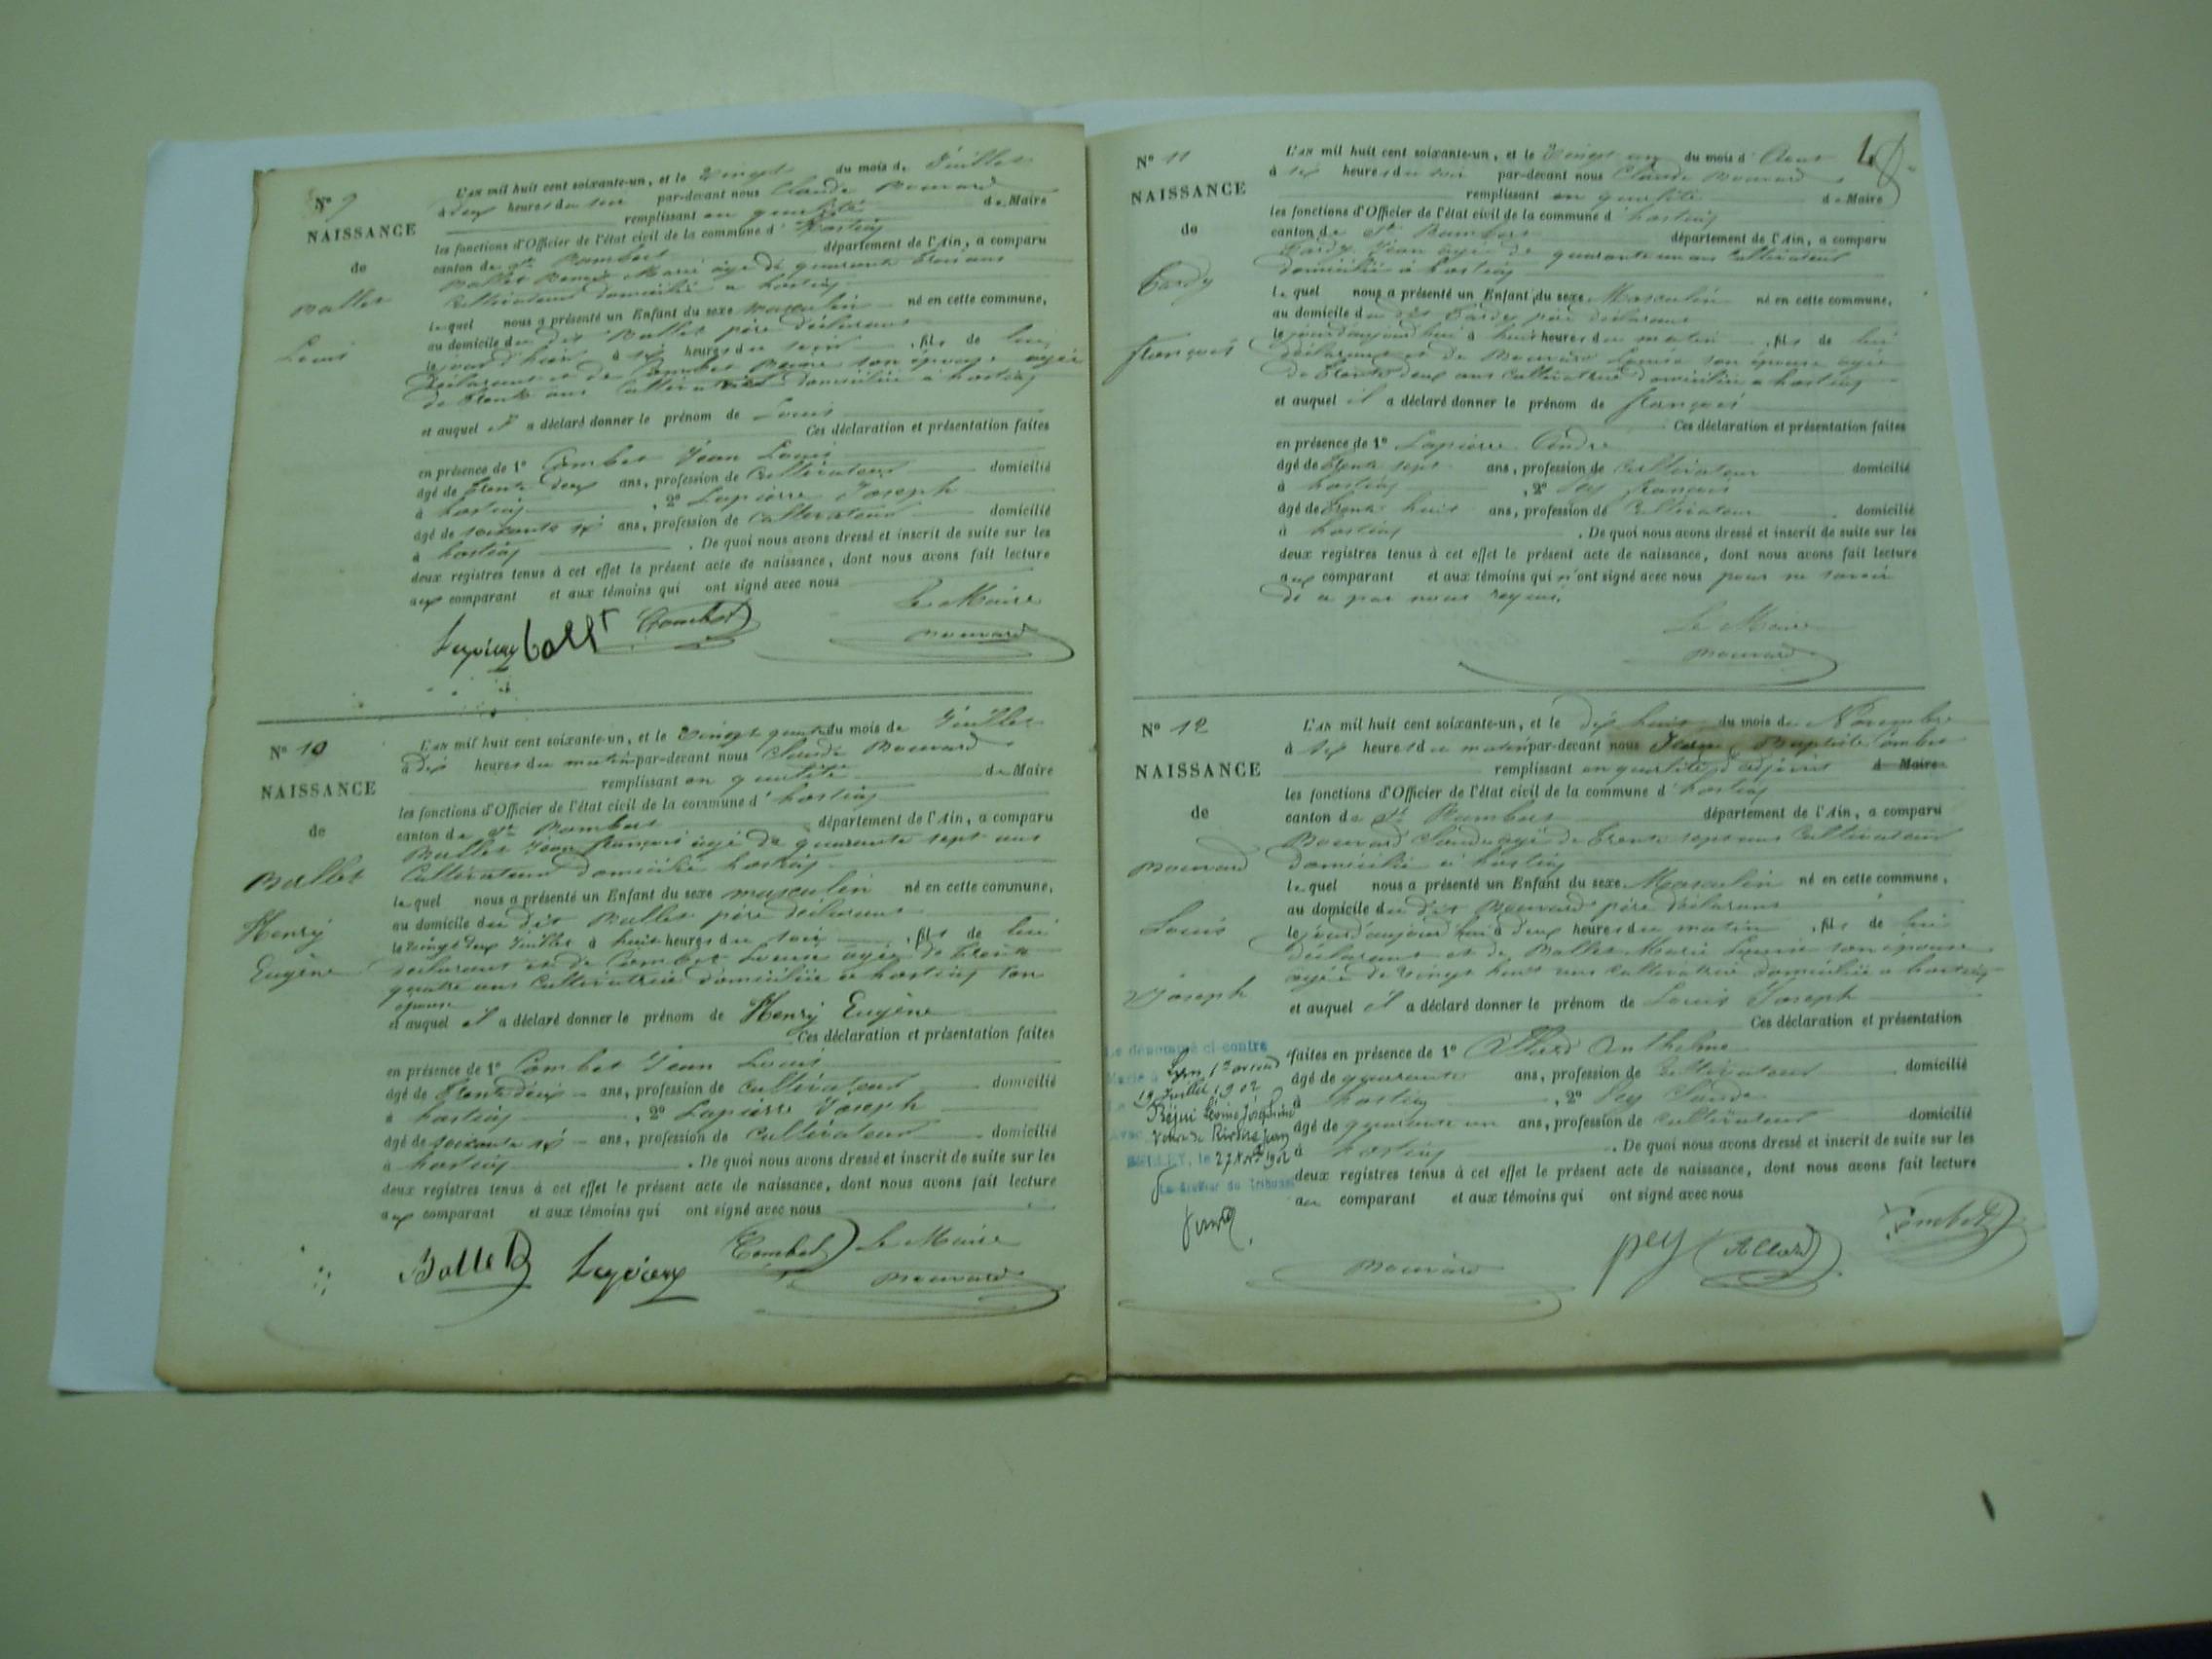 N° 9
NAISSANCE
de
Ballet
Louis
L'AN mil huit cent soixante-un, et le vingt du mois de Juillet
à deux heures du soir par-devant nous Claude Bouvard
remplissant en qualité de Maire
les fonctions d'Officier de l'état civil de la commune d' hostiaz
canton de St Rambert département de l'Ain, a comparu
Ballet Marie âgé de quarante trois ans
Cultivateur domicilié a hostiaz
lequel nous a présenté un Enfant du sexe masculin né en cette commune,
au domicile du dit Ballet père déclarant
le jour d'hier à six heures du soir , fils de lui
déclarant et de Combet son épouse agée
de trente ans Cultivatrice domiciliée a hostiaz
et auquel il a déclaré donner le prénom de Louis
Ces déclaration et présentation faites
en présence de 1° Combet Jean Louis
âgé de trente deux ans, profession de Cultivateur domicilié
à hostiaz , 2° Lapierre Joseph
âgé de soixante six ans, profession de Cultivateur domicilié
à hostiaz . De quoi nous avons dressé et inscrit de suite sur les
deux registres tenus à cet effet le présent acte de naissance, dont nous avons fait lecture
aux comparant et aux témoins qui ont signé avec nous
Le Maire
Combet Bouvard
N° 10
NAISSANCE
de
Ballet
Henry
Eugène
L'AN mil huit cent soixante-un, et le vingt quatre du mois de Juillet
à dix heures du matin par-devant nous Claude Bouvard
remplissant en qualité de Maire
les fonctions d'Officier de l'état civil de la commune d' hostiaz
canton de St Rambert département de l'Ain, a comparu
Ballet Jean françois âgé de quarante sept ans
Cultivateur domicilié hostiaz
lequel nous a présenté un Enfant du sexe masculin né en cette commune,
au domicile du dit Ballet père déclarant
le vingt deux Juillet à huit heures du soir , fils de lui
déclarant et de Combet Louise agée de trente
quatre ans Cultivatrice domiciliée a hostiaz son
épouse
et auquel il a déclaré donner le prénom de Henry Eugène
Ces déclaration et présentation faites
en présence de 1° Combet Jean Louis
âgé de trente deux ans, profession de Cultivateur domicilié
à hostiaz , 2° Lapierre Joseph
âgé de soixante six ans, profession de Cultivateur domicilié
à hostiaz . De quoi nous avons dressé et inscrit de suite sur les
deux registres tenus à cet effet le présent acte de naissance, dont nous avons fait lecture
aux comparant et aux témoins qui ont signé avec nous
Ballet Combet Le Maire
Bouvard
N° 11
NAISSANCE
de
Tardy
françois
L'AN mil huit cent soixante-un, et le vingt un du mois d' Aout
à six heures du soir par-devant nous Claude Bouvard
remplissant en qualité de Maire
les fonctions d'Officier de l'état civil de la commune d' hostiaz
canton de St Rambert département de l'Ain, a comparu
Tardy Jean âgé de quarante un ans Cultivateur
domicilié à hostiaz
lequel nous a présenté un Enfant du sexe Masculin né en cette commune,
au domicile du dit Tardy père déclarant
le jour d'aujourd'hui à huit heures du matin , fils de lui
déclarant et de Bouvard Louise son épouse agée
de trente deux ans Cultivatrice domiciliée a hostiaz
et auquel il a déclaré donner le prénom de françois
Ces déclaration et présentation faites
en présence de 1° Lapierre André
âgé de trente sept ans, profession de Cultivateur domicilié
à hostiaz , 2° Pey françois
âgé de trente huit ans, profession de Cultivateur domicilié
à hostiaz . De quoi nous avons dressé et inscrit de suite sur les
deux registres tenus à cet effet le présent acte de naissance, dont nous avons fait lecture
aux comparant et aux témoins qui n'ont signé avec nous pour ne savoir
de ce par nous requis.
Le Maire
Bouvard
N° 12
NAISSANCE
de
Bouvard
Louis
Joseph
L'AN mil huit cent soixante-un, et le dix huit du mois de Novembre
à six heures du matin par-devant nous Jean Baptiste Combet
remplissant en qualité d'adjoint de Maire
les fonctions d'Officier de l'état civil de la commune d' hostiaz
canton de St Rambert département de l'Ain, a comparu
Bouvard Claude âgé de trente sept ans Cultivateur
domicilié à hostiaz
lequel nous a présenté un Enfant du sexe Masculin né en cette commune,
au domicile du dit Bouvard père déclarant
le jour d'aujourd'hui à deux heures du matin , fils de lui
déclarant et de Ballet Marie Louise son épouse
agée de vingt huit ans Cultivatrice domiciliée a hostiaz
et auquel il a déclaré donner le prénom de Louis Joseph
Ces déclaration et présentation
faites en présence de 1° Allard Anthelme
âgé de quarante ans, profession de Cultivateur domicilié
à hostiaz , 2° Pey Claude
âgé de quarante un ans, profession de Cultivateur domicilié
à hostiaz . De quoi nous avons dressé et inscrit de suite sur les
deux registres tenus à cet effet le présent acte de naissance, dont nous avons fait lecture
au comparant et aux témoins qui ont signé avec nous
Le dénommé ci contre
Marié à Lyon 1er arrond
le 19 Juillet 1902
avec Joséphine
Veuve de Rivoire Jean
BELLEY, le 27 1902
Le Greffier du Tribunal
Bouvard pey Allard Combet